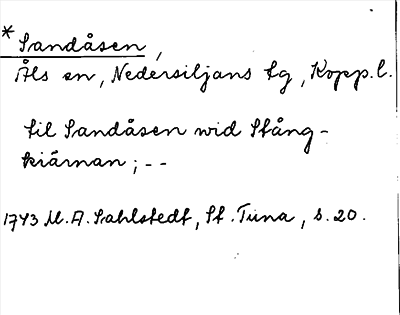 *Sandåsen,
Åls sn, Nedersiljans tg, Kopp.l.
til Sandåsen wid Stång-
kiärnan; --
1743 M.A. Sahlstedt, St. Tuna, s. 20.